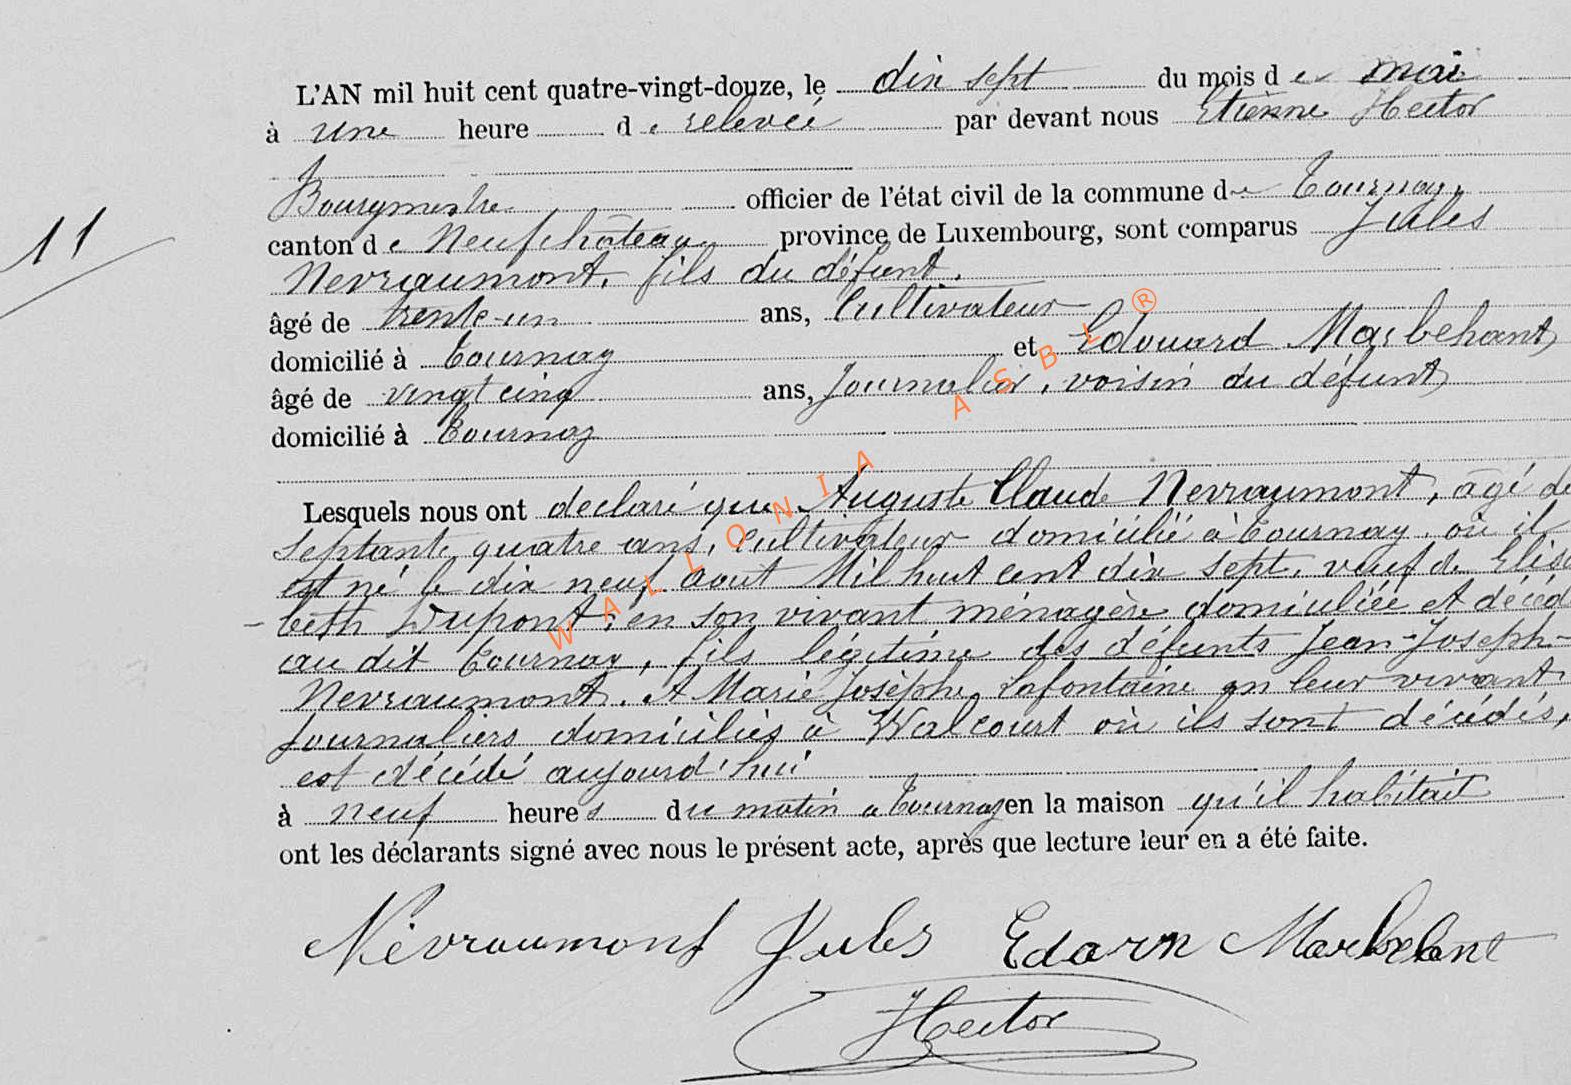 L'AN mil huit cent quatre-vingt-douze, le dix sept du mois de mai
à une heure de relevée par devant nous Etienne Hector
Bourgmestre officier de l'état civil de la commune de Tournay,
canton de Neufchâteau province de Luxembourg, sont comparus Jules
Nevraumont, fils du défunt,
âgé de trente-un ans, Cultivateur
domicilié à Tournay et Edouard Marbehant
âgé de vingt cinq ans, Journalier, voisin du défunt
domicilié à Tournay
Lesquels nous ont declaré que Auguste Claude Nevraumont, âgé de
septante quatre ans, cultivateur domicilié à Tournay, où il
est né le dix neuf aout Mil huit cent dix sept, veuf de Elisa
beth Dupont, en son vivant ménagère domiciliée et décédé
au dit Tournay, fils légitime des défunts Jean-Joseph-
Nevraumont. et Marie Josèphe Lafontaine en leur vivant
Journaliers domiciliés à Walcourt où ils sont décédés,
est décédé aujourd'hui
à neuf heures du matin a Tournay en la maison qu'il habitait
ont les déclarants signé avec nous le présent acte, après que lecture leur en a été faite.
11
Névraumont Jules Edarn Marbehant
Hector
WALLONIA ASBL ®